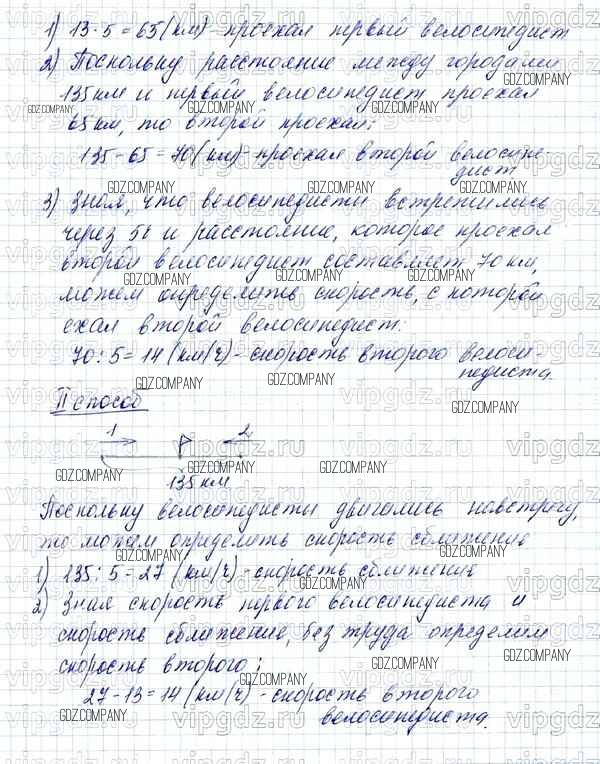 1) 13 · 5 = 65 (км) - проехал первый велосипедист
2) Поскольку расстояние между городами
135 км и первый велосипедист проехал
65 км, то второй проехал:
135 - 65 = 70 (км) - проехал второй велосипе-
дист
3) Зная, что велосипедисты встретились
через 5ч и расстояние, которое проехал
второй велосипедист составляет 70 км,
можем определить скорость, с которой
ехал второй велосипедист:
70 : 5 = 14 (км/ч) - скорость второго велоси-
педиста.
II способ
1 2
135 км
Поскольку велосипедисты двигались навстречу,
то можем определить скорость сближение
1) 135 : 5 = 27 (км/ч) - скорость сближения
2) Зная скорость первого велосипедиста и
скорость сближение, без труда определим
скорость второго:
27 - 13 = 14 (км/ч) - скорость второго
велосипедиста.